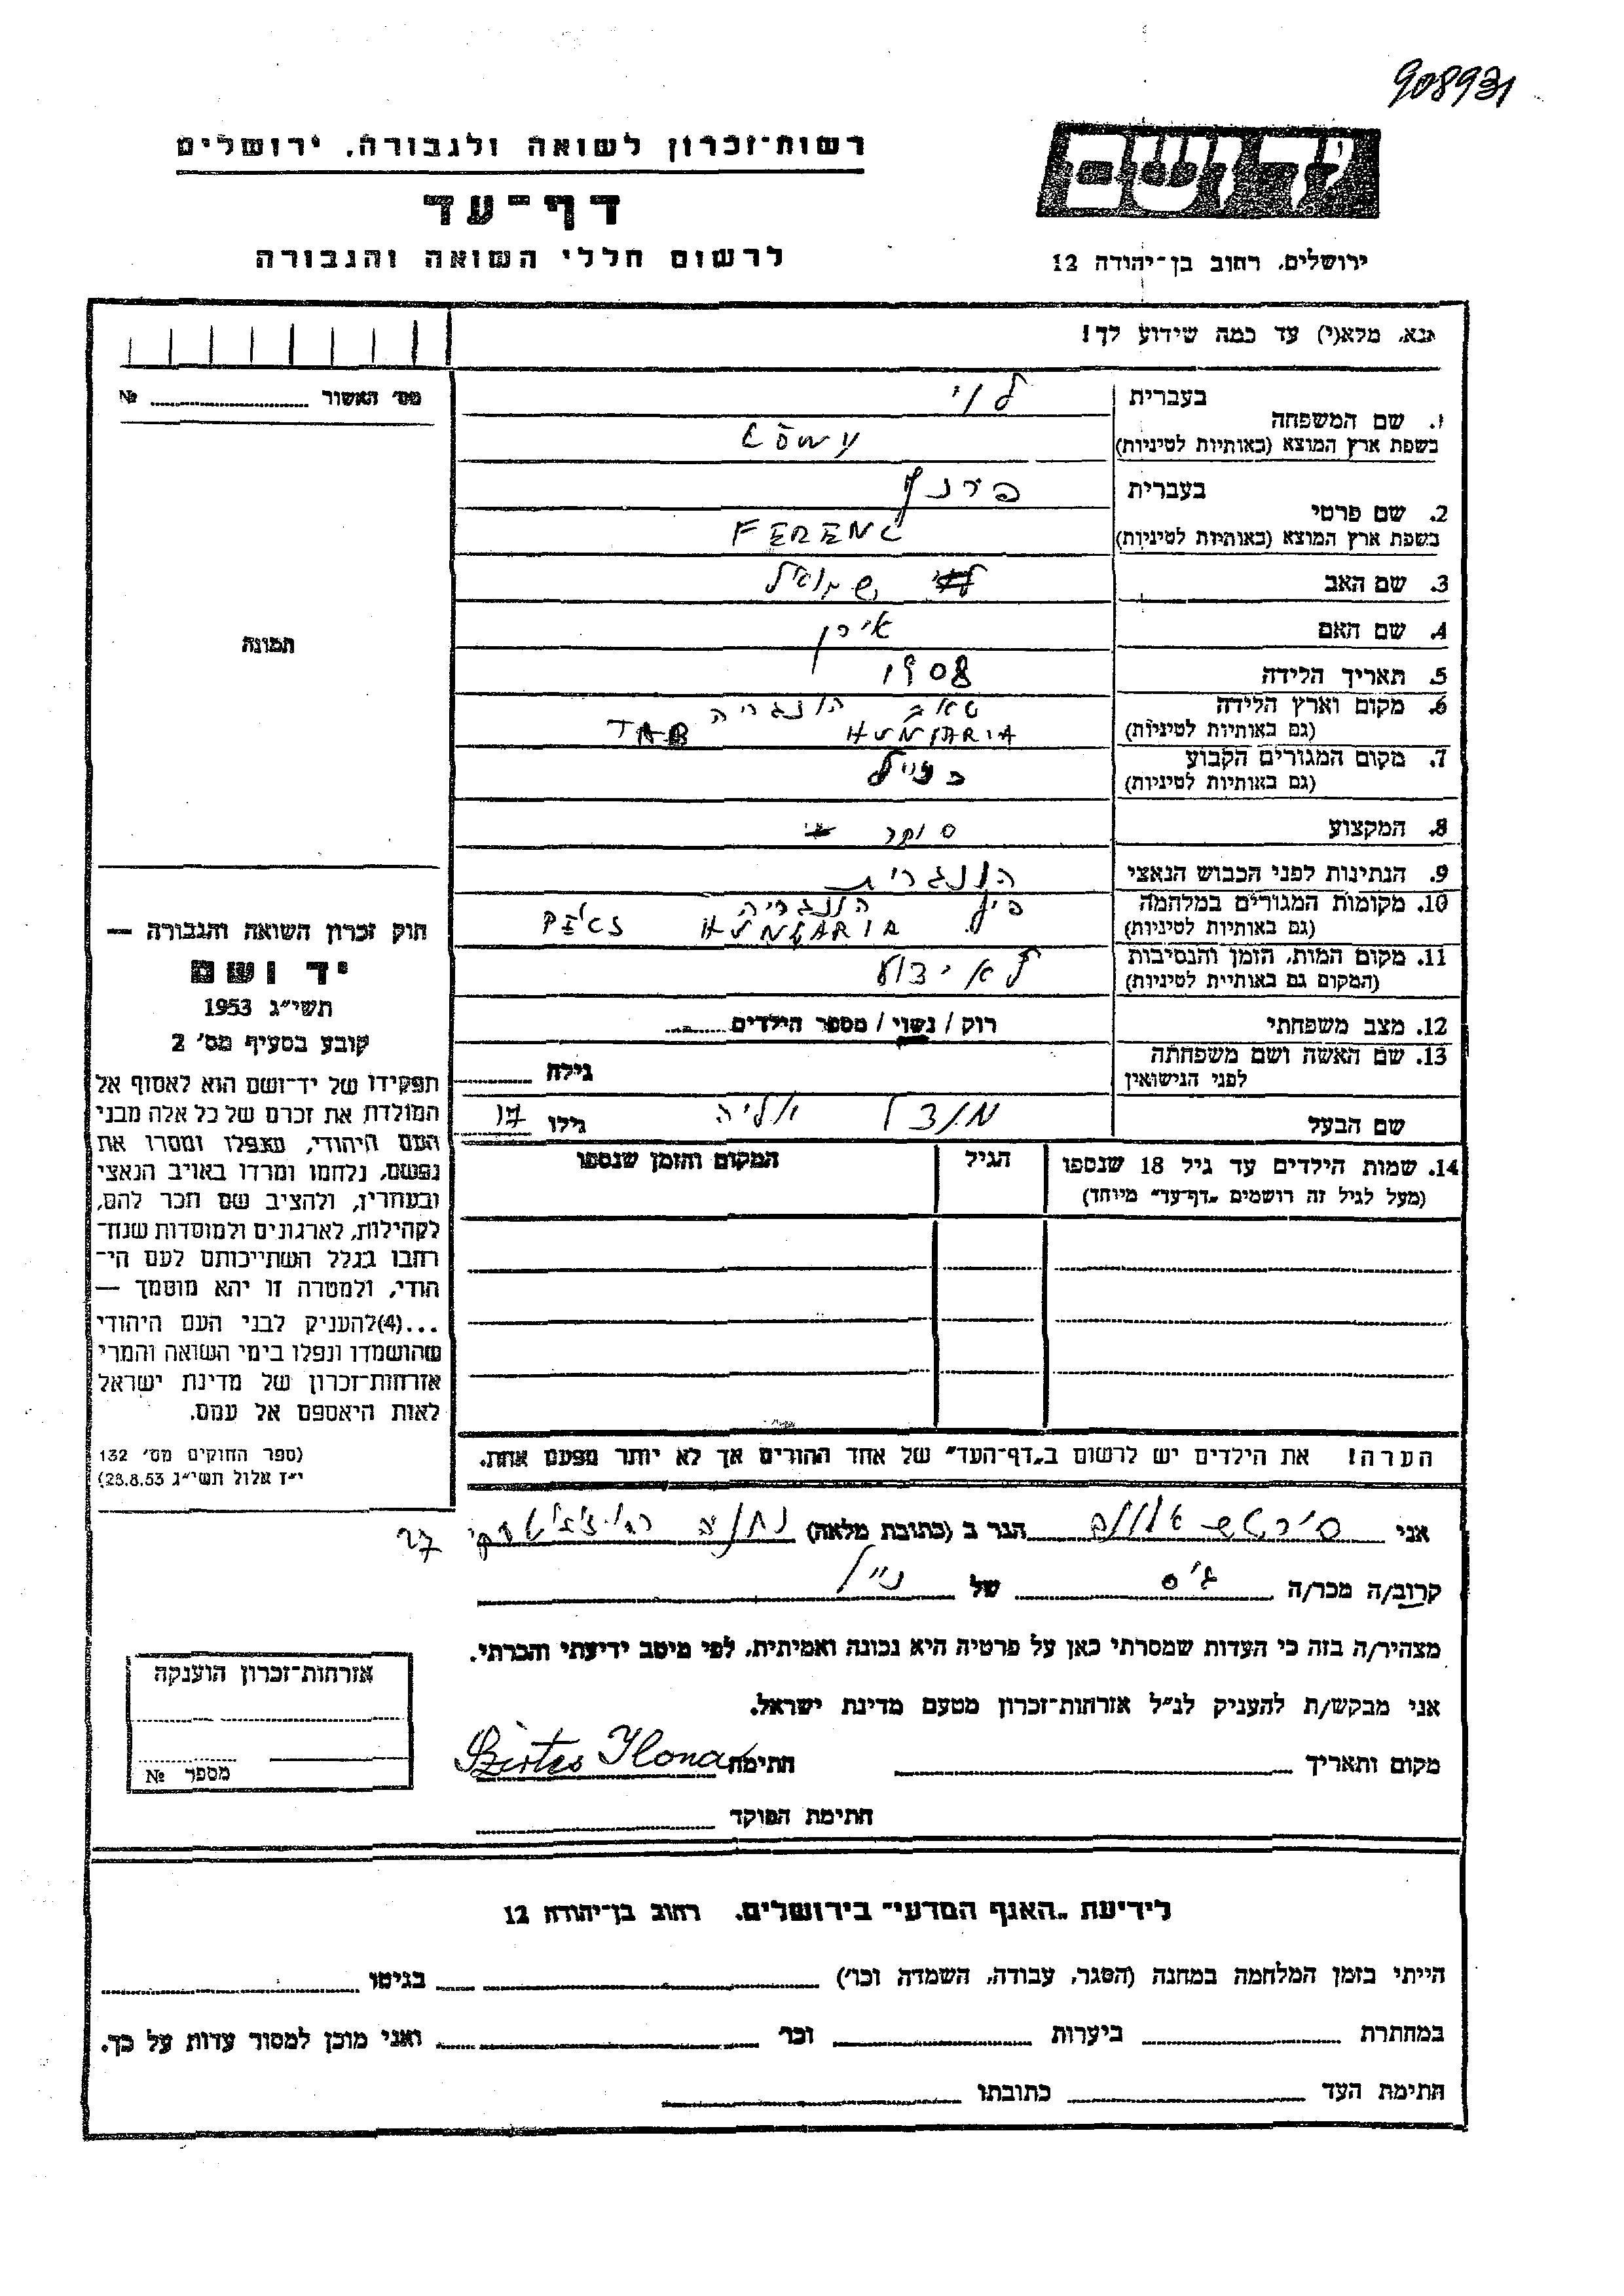 908931
יד ושם
רשות־זכרון לשואה ולגבורה, ירושלים
דף־עד
לרשום חללי השואה והגבורה
ירושלים, רחוב בן־יהודה 12
נא, מלא(י) עד כמה שידוע לך!
מס׳ האשור № ........
1. שם המשפחה בעברית לוי
בשפת ארץ המוצא (באותיות לטיניות) Löwy
2. שם פרטי בעברית פרנץ
בשפת ארץ המוצא (באותיות לטיניות) FERENC
3. שם האב שמואל
4. שם האם אירן
5. תאריך הלידה 1908
6. מקום וארץ הלידה טאב הונגריה
(גם באותיות לטיניות) HUNGARIA TAB
7. מקום המגורים הקבוע כנ״ל
(גם באותיות לטיניות)
8. המקצוע סוחר
9. הנתינות לפני הכבוש הנאצי הונגרית
10. מקומות המגורים במלחמה פיץ הונגריה
(גם באותיות לטיניות) HUNGARIA PÉCS
11. מקום המות, הזמן והנסיבות לא ידוע
(המקום גם באותיית לטיניות)
12. מצב משפחתי רוק / נשוי / מספר הילדים ........
13. שם האשה ושם משפחתה
לפני הנישואין גילה ........
שם הבעל מנדל גילו
14. שמות הילדים עד גיל 18 שנספו הגיל המקום והזמן שנספו
(מעל לגיל זה רושמים „דף־עד״ מיוחד)
הערה! את הילדים יש לרשום ב„דף־העד״ של אחד ההורים אך לא יותר מפעם אחת.
תמונה
חוק זכרון השואה והגבורה —
יד ושם
תשי״ג 1953
קובע בסעיף מס׳ 2
תפקידו של יד־ושם הוא לאסוף אל
המולדת את זכרם של כל אלה מבני
העם היהודי, שנפלו ומסרו את
נפשם, נלחמו ומרדו באויב הנאצי
ובעוזריו, ולהציב שם וזכר להם,
לקהילות, לארגונים ולמוסדות שנח־
רבו בגלל השתייכותם לעם הי־
הודי, ולמטרה זו יהא מוסמך —
...(4)להעניק לבני העם היהודי
שהושמדו ונפלו בימי השואה והמרי
אזרחות־זכרון של מדינת ישראל
לאות היאספם אל עמם.
(ספר החוקים מס׳ 132
י״ז אלול תשי״ג 28.8.53)
אני סירטש הגר ב (כתובת מלאה) נתניה 27
קרוב/ה מכר/ה גיס של נ״ל
מצהיר/ה בזה כי העדות שמסרתי כאן על פרטיה היא נכונה ואמיתית, לפי מיטב ידיעתי והכרתי.
אני מבקש/ת להעניק לנ״ל אזרחות־זכרון מטעם מדינת ישראל.
מקום ותאריך ........ חתימה Szirtes Ilona
חתימת הפוקד ........
אזרחות־זכרון הוענקה
מספר №
לידיעת „האגף המדעי״ בירושלים, רחוב בן־יהודה 12
הייתי בזמן המלחמה במחנה (הסגר, עבודה, השמדה וכו׳) ........ בגיטו ........
במחתרת ........ ביערות ........ וכו׳ ........ ואני מוכן למסור עדות על כך.
חתימת העד ........ כתובתו ........